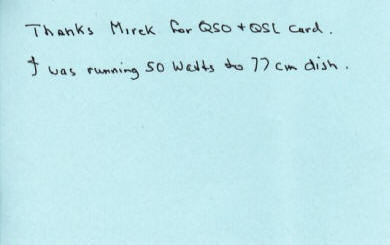 Thanks Mirek for QSO + QSL Card.
I was running 50 Watts to 77 cm dish.